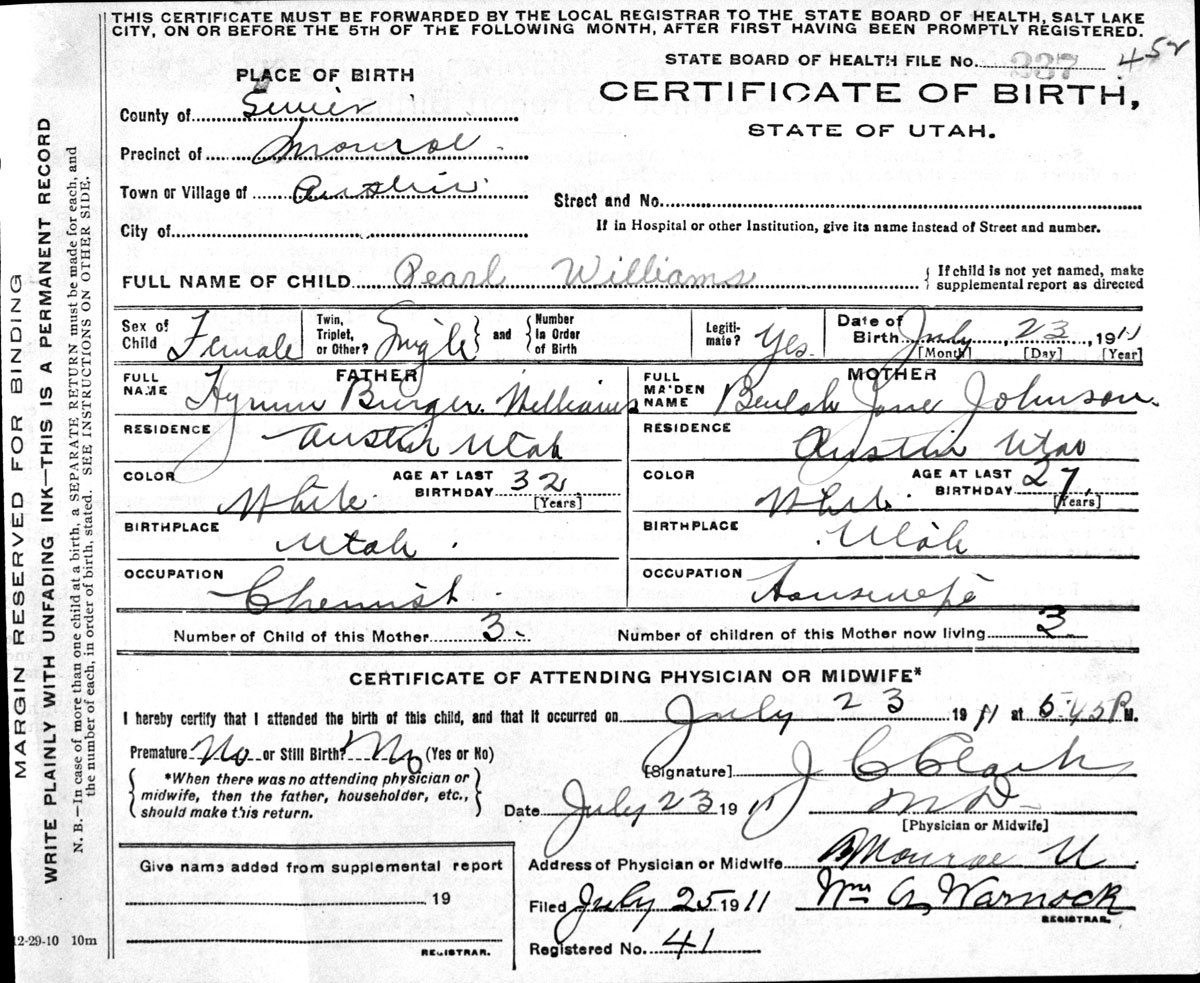 THIS CERTIFICATE MUST BE FORWARDED BY THE LOCAL REGISTRAR TO THE STATE BOARD OF HEALTH, SALT LAKE
CITY, ON OR BEFORE THE 5TH OF THE FOLLOWING MONTH, AFTER FIRST HAVING BEEN PROMPTLY REGISTERED.
STATE BOARD OF HEALTH FILE No. 337 452
PLACE OF BIRTH
CERTIFICATE OF BIRTH,
STATE OF UTAH.
County of Sevier
Precinct of Monroe
Town or Village of Austin
Street and No.
City of
If in Hospital or other Institution, give its name instead of Street and number.
FULL NAME OF CHILD Pearl Williams { If child is not yet named, make
supplemental report as directed
Sex of Child Female
Twin, Triplet, or Other? Single } and { Number in Order of Birth
Legitimate? Yes.
Date of Birth July, 23, 1911
[Month] [Day] [Year]
FATHER
FULL NAME Hyrum Burger Williams
RESIDENCE Austin Utah
COLOR White
AGE AT LAST BIRTHDAY 32
[Years]
BIRTHPLACE Utah.
OCCUPATION Chemist.
MOTHER
FULL MAIDEN NAME Beulah Jane Johnson.
RESIDENCE Austin Utah
COLOR White.
AGE AT LAST BIRTHDAY 27,
[Years]
BIRTHPLACE Utah
OCCUPATION Housewife
Number of Child of this Mother 3-
Number of children of this Mother now living 3
CERTIFICATE OF ATTENDING PHYSICIAN OR MIDWIFE*
I hereby certify that I attended the birth of this child, and that it occurred on July 23 1911 at 5:45 P. M.
Premature No or Still Birth? No (Yes or No)
*When there was no attending physician or
midwife, then the father, householder, etc.,
should make this return.
[Signature] J C Clark
Date July 23 1911 M D-
[Physician or Midwife]
Address of Physician or Midwife Monroe U
Give name added from supplemental report
19
REGISTRAR.
Filed July 25 1911 Wm A Warnock
REGISTRAR.
Registered No. 41
12-29-10 10m
MARGIN RESERVED FOR BINDING
WRITE PLAINLY WITH UNFADING INK—THIS IS A PERMANENT RECORD
N. B.—In case of more than one child at a birth, a SEPARATE RETURN must be made for each, and
the number of each, in order of birth, stated. SEE INSTRUCTIONS ON OTHER SIDE.